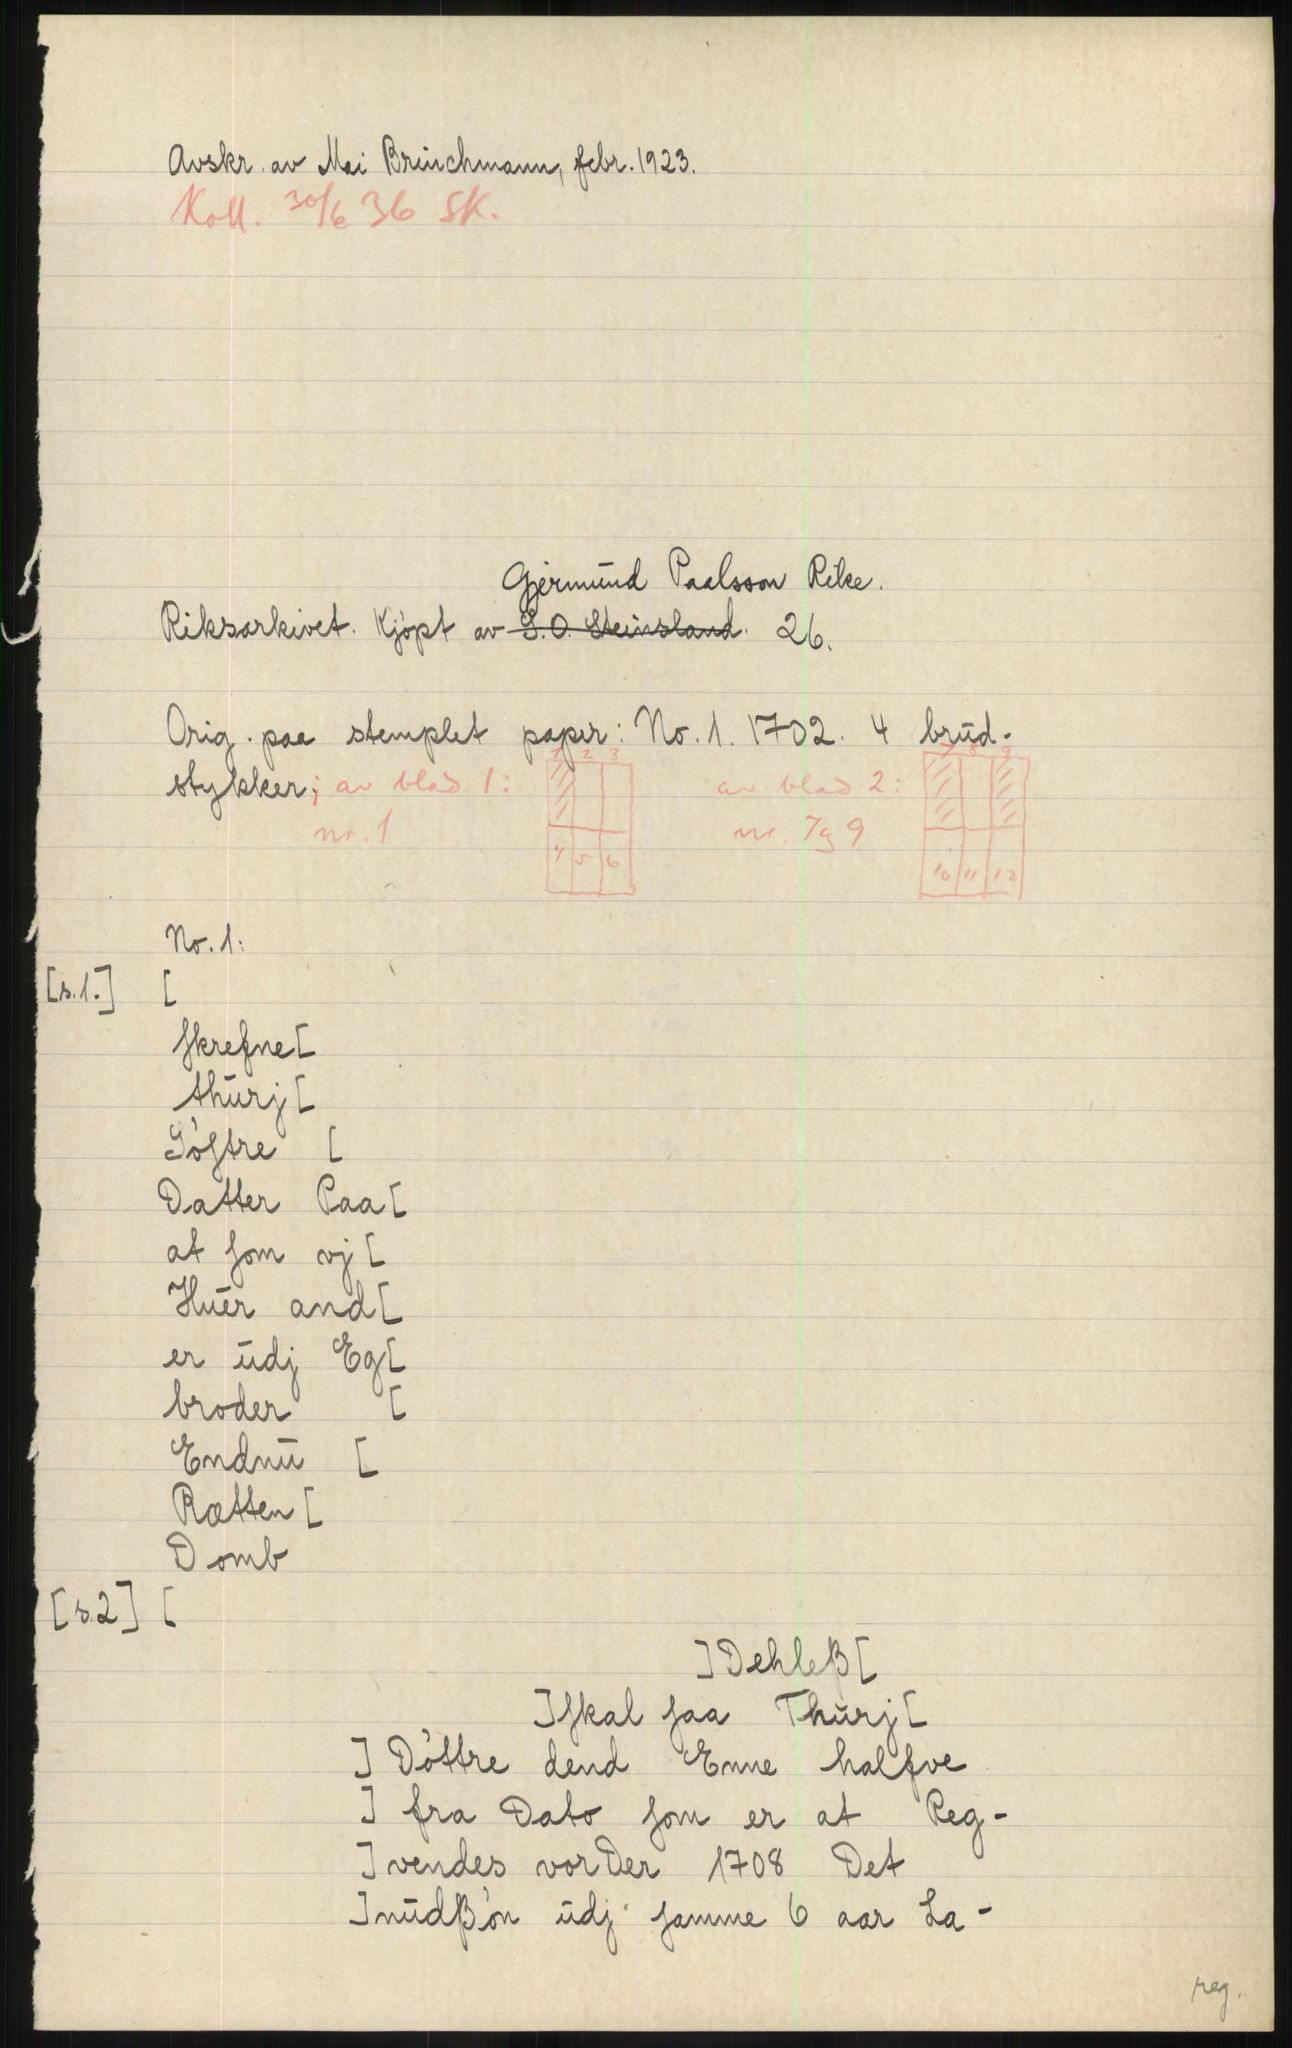 Avskr. av Mai Brinchmann, febr. 1923.
Koll. 30/6 36 SK.
Gjermund Paalsson Rike.
Riksarkivet. Kjøpt av S. O. Steinsland. 26.
Orig. paa stemplet papir: No. 1. 1702. 4 brud-
stykker; av blad 1: av blad 2:
nr. 1 nr. 7 og 9
1 2 3
4 5 6
7 8 9
10 11 12
No. 1:
[s.1.] [
skrefne[
thurj[
Søstre [
Datter Paa[
at som vj[
Huer and[
er udj Eg[
broder [
Endnu [
Rætten[
Domb
[s.2] [
]Dehleß[
]skal saa Thurj[
] Døttre dend Enne halfve
] fra Dato som er at Reg-
]vendes vorDer 1708 Det
]nudßøn udj samme 6 aar La-
reg.